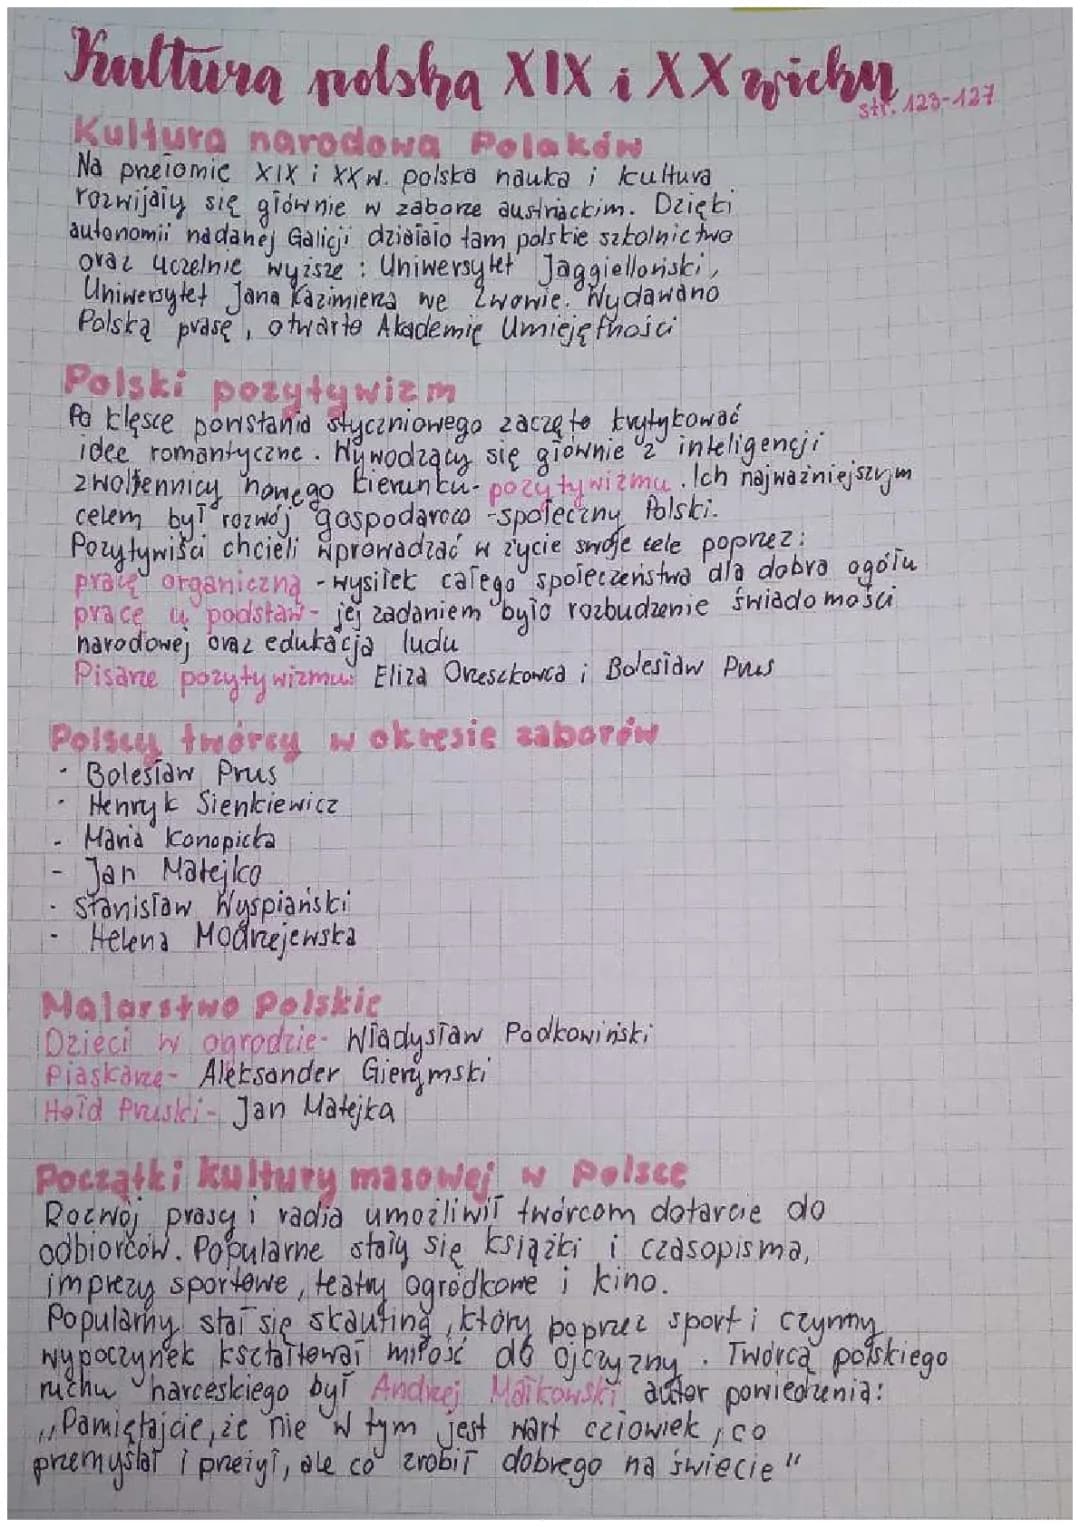 Kultura polska XIX i XX wieku
str. 123-127
Kultura narodowa Polaków
Na przełomie XIX i XX w. polska nauka i kultura
rozwijały się głównie w zaborze austriackim. Dzięki
autonomii nadanej Galicji działało tam polskie szkolnictwo
oraz uczelnie wyższe: Uniwersytet Jaggielloński,
Uniwersytet Jana Kazimierza we Lwowie. Wydawano
Polską prasę, otwarto Akademię Umiejętności
Polski pozytywizm
Po klęsce powstania styczniowego zaczęto krytykować
idee romantyczne. Wywodzący się głównie z inteligencji
zwolennicy nowego kierunku- pozytywizmu. Ich najważniejszym
celem był rozwój gospodarczo-społeczny Polski.
Pozytywiści chcieli wprowadzać w życie swoje cele poprzez:
pracę organiczną - wysiłek całego społeczeństwa dla dobra ogółu
pracę u podstaw - jej zadaniem było rozbudzenie świadomości
narodowej oraz edukacja ludu
Pisarze pozytywizmu: Eliza Orzeszkowa i Bolesław Prus
Polscy twórcy w okresie zaborów
- Bolesław Prus
- Henryk Sienkiewicz
- Maria Konopicka
- Jan Matejko
- Stanisław Wyspiański
- Helena Modrzejewska
Malarstwo Polskie
Dzieci w ogrodzie- Władysław Podkowiński
Piaskarze- Aleksander Gierymski
Hołd Pruski- Jan Matejka
Początki kultury masowej w Polsce
Rozwój prasy i radia umożliwił twórcom dotarcie do
odbiorców. Popularne stały się książki i czasopisma,
imprezy sportowe, teatry ogródkowe i kino.
Popularny stał się skauting, który poprzez sport i czynny
wypoczynek kształtował miłość do ojczyzny. Twórcą polskiego
ruchu harceskiego był Andrzej Małkowski autor powiedzenia:
„Pamiętajcie, że nie w tym jest wart człowiek, co
przemyślał i przeżył, ale co zrobił dobrego na świecie"